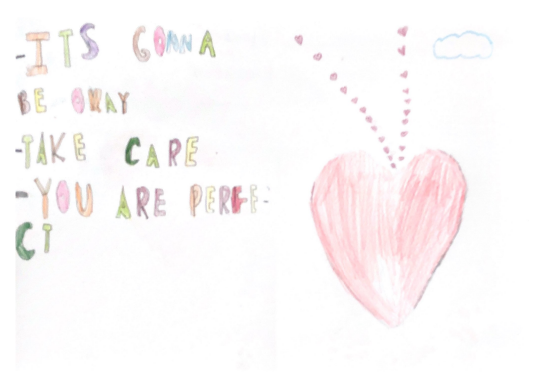 -ITS GONNA
BE OKAY
-TAKE CARE
-YOU ARE PERFE-
CT